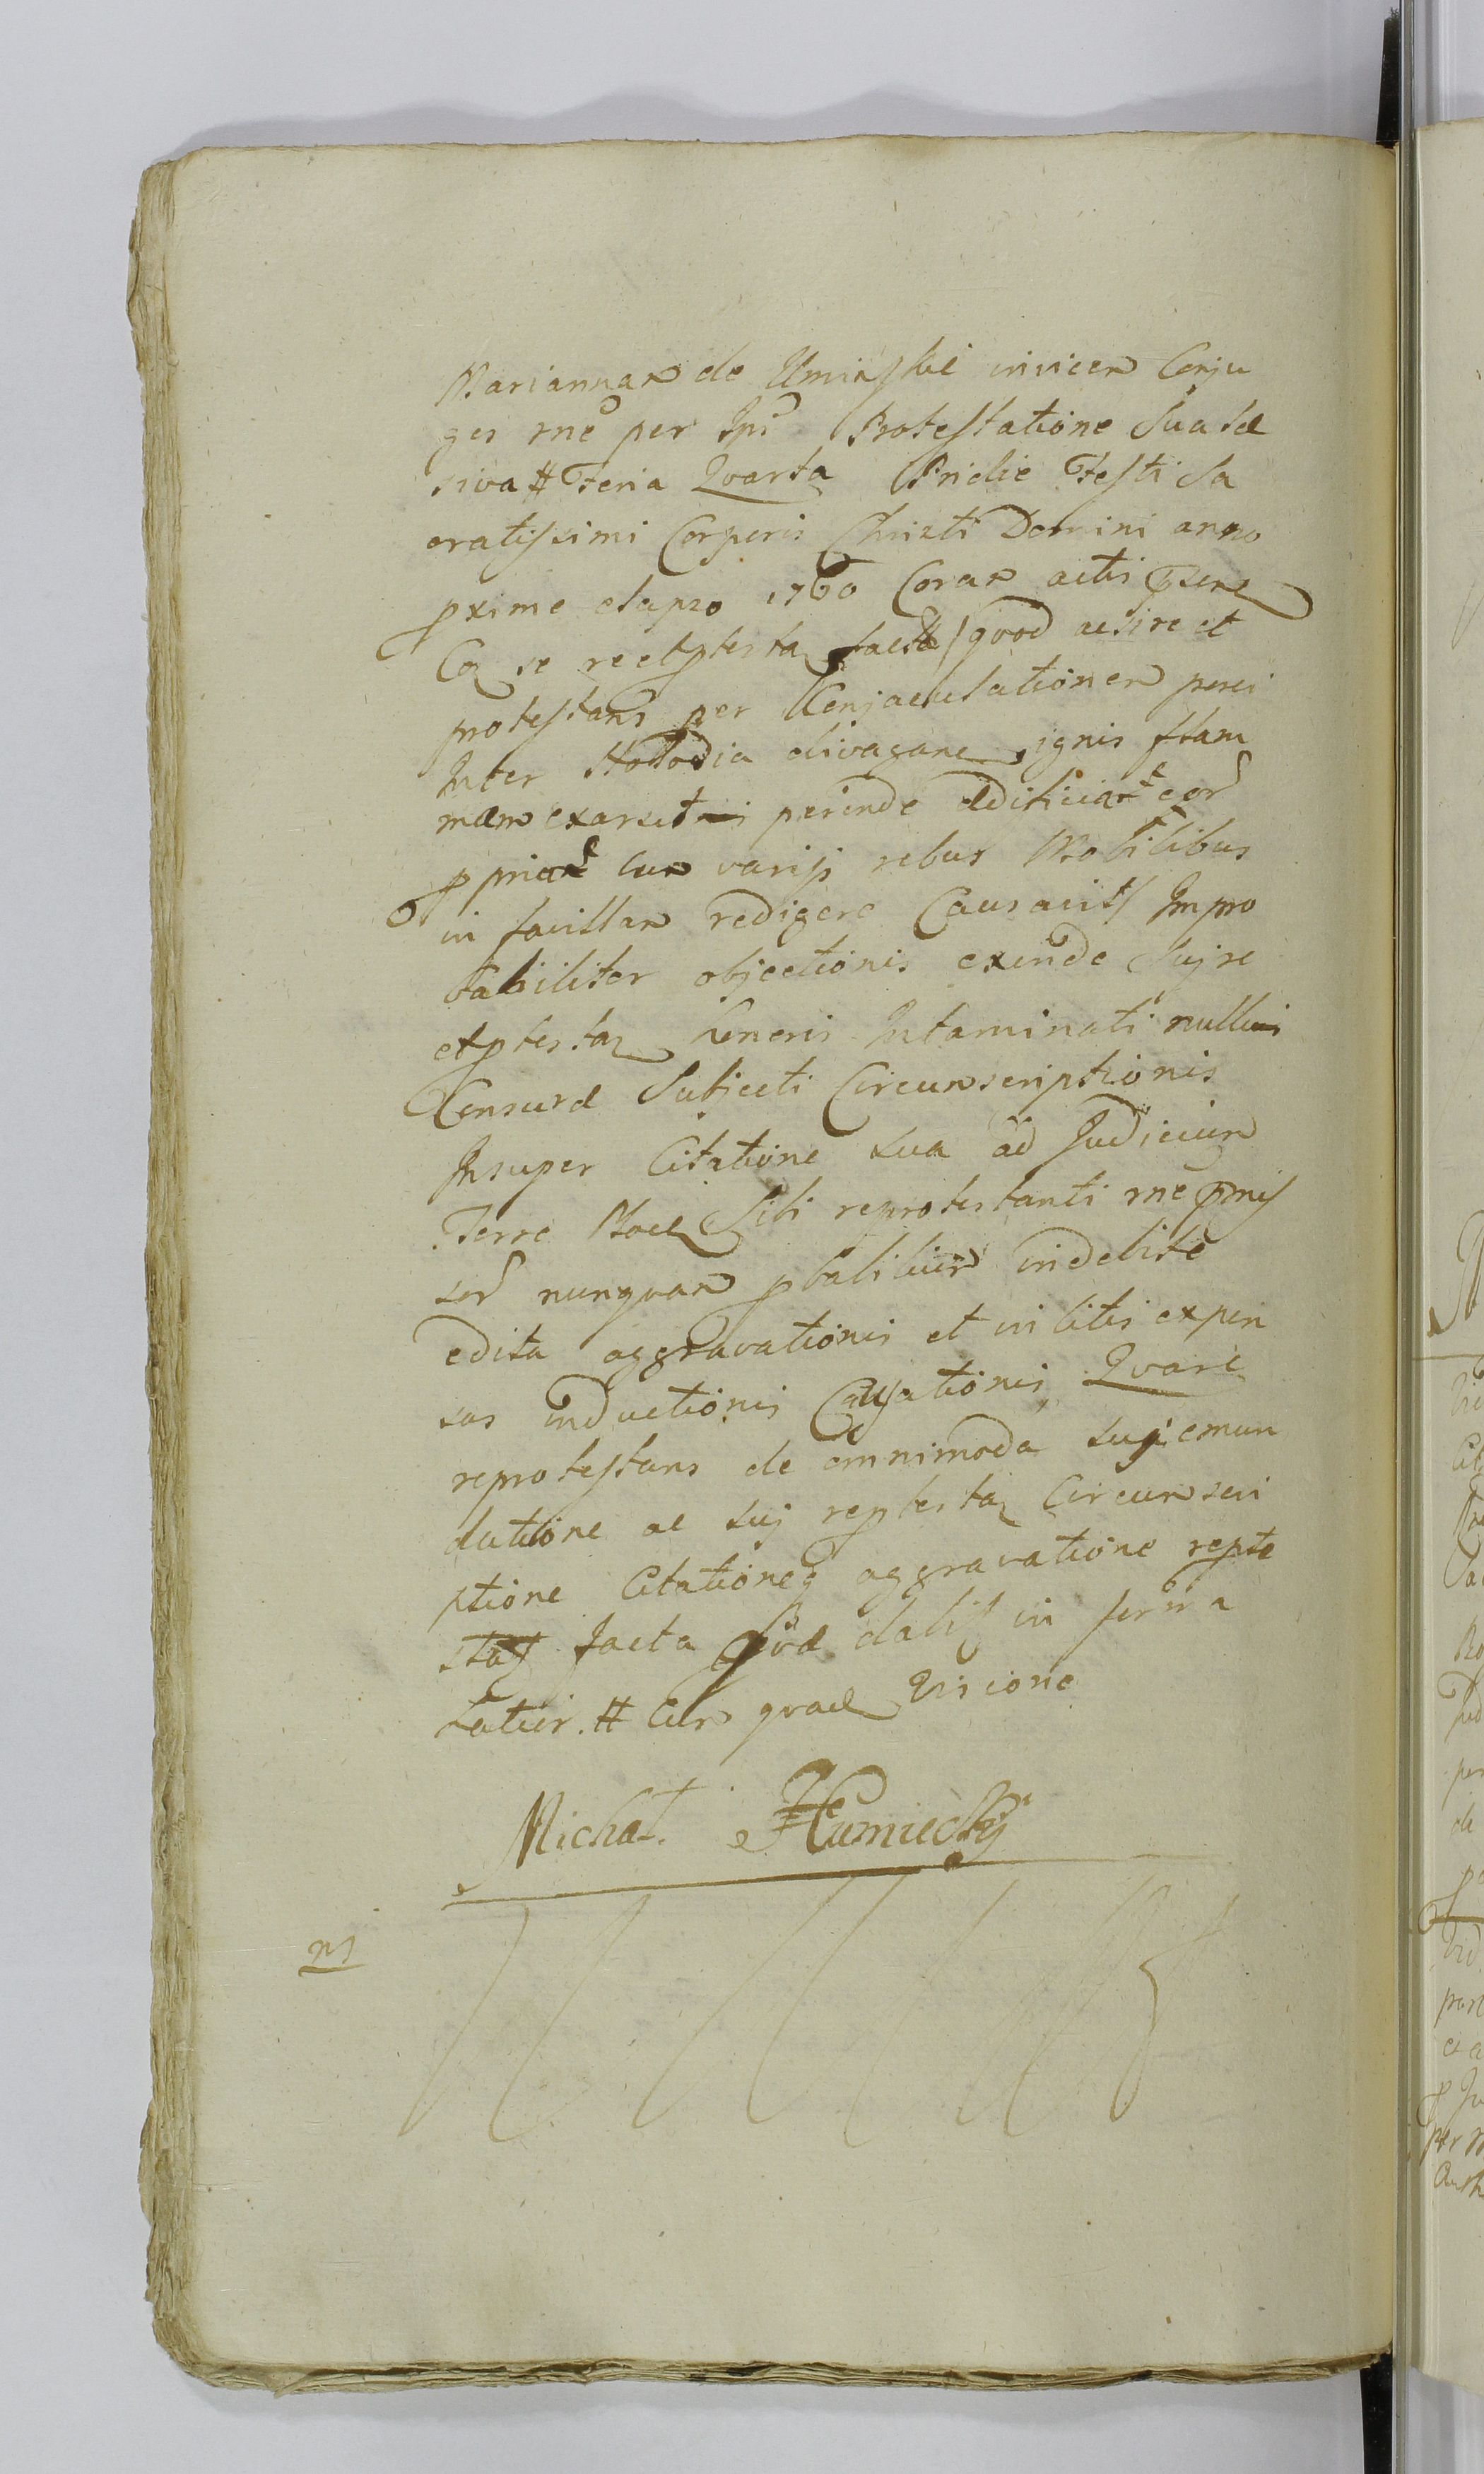 Mariannam de Uminskie invicem Conju
ges rne per Ipso Protestatione Sua lae
siva # Feria Quarta Pridie Festi Sa
cratissimi Corporis Christi Domini anno
pxime elapso 1760 Coram actis psen
Coa se reetptestaz facta / quod ac si re et
protestans per Conjaculationem
Inter divagans ignis flam
mam exarsit perinde aedificia eor
ppria cum varijs rebus Mobilibus
in favillam redigere Causavit / Impro
babiliter objectionis exinde Suj re
etptestaz Generis Intaminati nulli
Censurae Subjecti Circumscriptionis
Insuper Citatione sua ad Judicium
Terre Sibi reprotestanti rne pmis
sor nunquam pbalibium indebite
edita aggravationis et in litis expen
sas inductionis Causationis Quare
reprotestans de omnimoda suj emun
datione ac suj reptestaz Circumscri
ptione Citationeq aggravatione repte
staz facta dalis in
latur. # Cum Visione
Michał Humiecky
ns